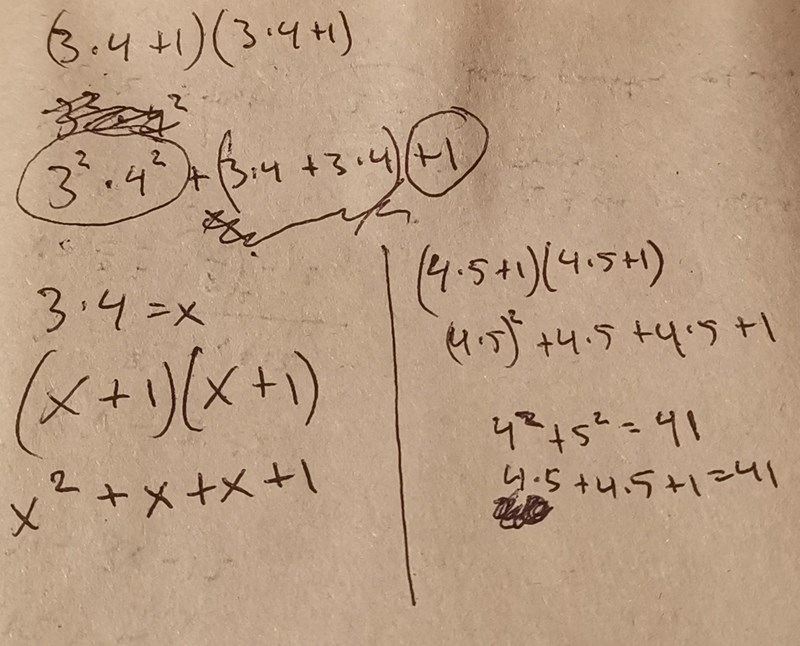 (3·4+1)(3·4+1)
3²·4²+(3·4+3·4)+1
3·4=x
(x+1)(x+1)
x²+x+x+1
(4·5+1)(4·5+1)
(4·5)²+4·5+4·5+1
4²+5²=41
4·5+4·5+1=41